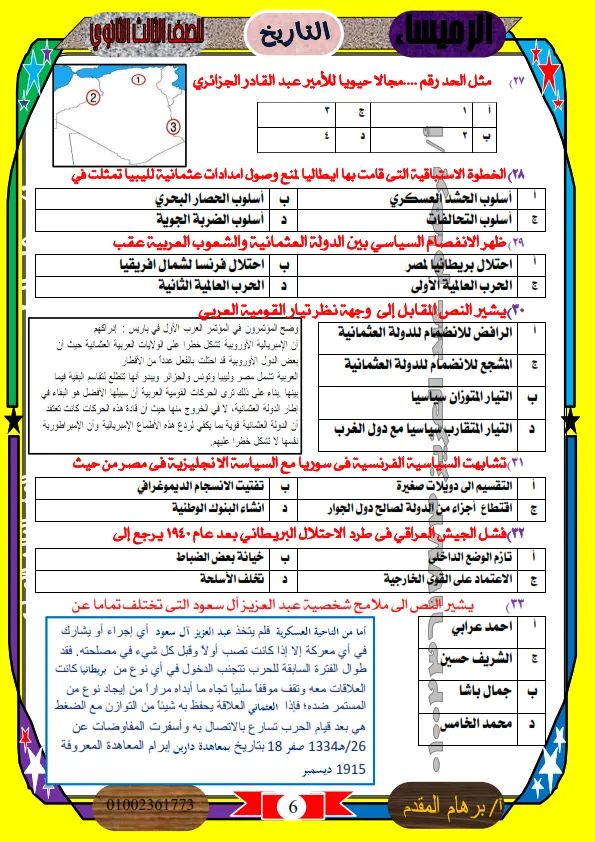 الرميساء
التاريخ
للصف الثالث الثانوي
٢٧) مثل الحد رقم ....مجالا حيويا للأمير عبد القادر الجزائري
أ ١ ج ٣
ب ٢ د ٤
1
2
3
٢٨) الخطوة الاستباقية التى قامت بها ايطاليا لمنع وصول امدادات عثمانية لليبيا تمثلت في
أ أسلوب الحشد العسكري ب أسلوب الحصار البحري
ج أسلوب التحالفات د أسلوب الضربة الجوية
٢٩) ظهر الانفصام السياسي بين الدولة العثمانية والشعوب العربية عقب
أ احتلال بريطانيا لمصر ب احتلال فرنسا لشمال افريقيا
ج الحرب العالمية الأولى د الحرب العالمية الثانية
٣٠) يشير النص المقابل إلى وجهة نظر تيار القومية العربي
أ الرافض للانضمام للدولة العثمانية
ج المشجع للانضمام للدولة العثمانية
ب التيار المتوازن سياسيا
د التيار المتقارب سياسيا مع دول الغرب
وضح المؤتمرون في المؤتمر العرب الأول في باريس : إدراكهم
أن الإمبريالية الأوروبية تشكل خطرا على الولايات العربية العثمانية حيث أن
بعض الدول الأوروبية قد احتلت بالفعل عدداً من الأقطار
العربية تشمل مصر وليبيا وتونس والجزائر ويبدو أنها تتطلع لتقاسم البقية فيما
بينها بناء على ذلك ترى الحركات القومية العربية أن سبيلها الأفضل هو البقاء في
إطار الدولة العثمانية، لا في الخروج منها حيث أن قادة هذه الحركات كانت تعتقد
أن الدولة العثمانية قوية بما يكفي لردع هذه الأطماع الإمبريالية وأن الإمبراطورية
نفسها لا تشكل خطرا عليهم.
٣١) تشابهت السياسية الفرنسية فى سوريا مع السياسة الانجليزية فى مصر من حيث
أ التقسيم الى دويلات صغيرة ب تفتيت الانسجام الديموغرافي
ج اقتطاع أجزاء من الدولة لصالح دول الجوار د انشاء البنوك الوطنية
٣٢) فشل الجيش العراقي فى طرد الاحتلال البريطاني بعد عام ١٩٤٠ يرجع إلى
أ تازم الوضع الداخلى ب خيانة بعض الضباط
ج الاعتماد على القوى الخارجية د تخلف الأسلحة
٣٣) يشير النص الى ملامح شخصية عبد العزيز أل سعود التى تختلف تماما عن
أ احمد عرابي
ج الشريف حسين
ب جمال باشا
د محمد الخامس
أما من الناحية العسكرية فلم يتخذ عبد العزيز آل سعود أي إجراء أو يشارك
في أي معركة إلا إذا كانت تصب أولاً وقبل كل شيء في مصلحته. فقد
طوال الفترة السابقة للحرب تتجنب الدخول في أي نوع من بريطانيا كانت
العلاقات معه وتقف موقفاً سلبياً تجاه ما أبداه مراراً من إيجاد نوع من
المستمر ضده؛ فإذا العثماني العلاقة يحفظ به شيئاً من التوازن مع الضغط
هي بعد قيام الحرب تسارع بالاتصال به وأسفرت المفاوضات عن
26/هـ1334 صفر 18 بتاريخ بمعاهدة دارين إبرام المعاهدة المعروفة
1915 ديسمبر
أ/ برهام المقدم
6
01002361773